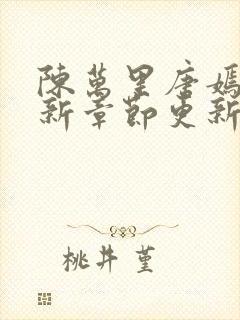 陳萬里唐嫣
新章節更新
桃井 堇